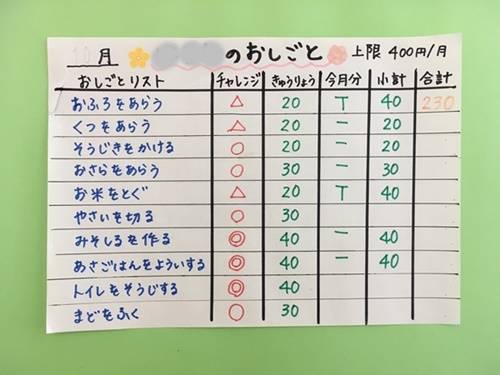 10月 のおしごと 上限 400円/月
おしごとリスト チャレンジ きゅうりょう 今月分 小計 合計
おふろをあらう △ 20 T 40 230
くつをあらう △ 20 一 20
そうじきをかける ○ 20 一 20
おさらをあらう ○ 30 一 30
お米をとぐ △ 20 T 40
やさいを切る ○ 30
みそしるを作る ◎ 40 一 40
あさごはんをよういする ◎ 40 一 40
トイレをそうじする ◎ 40
まどをふく ○ 30